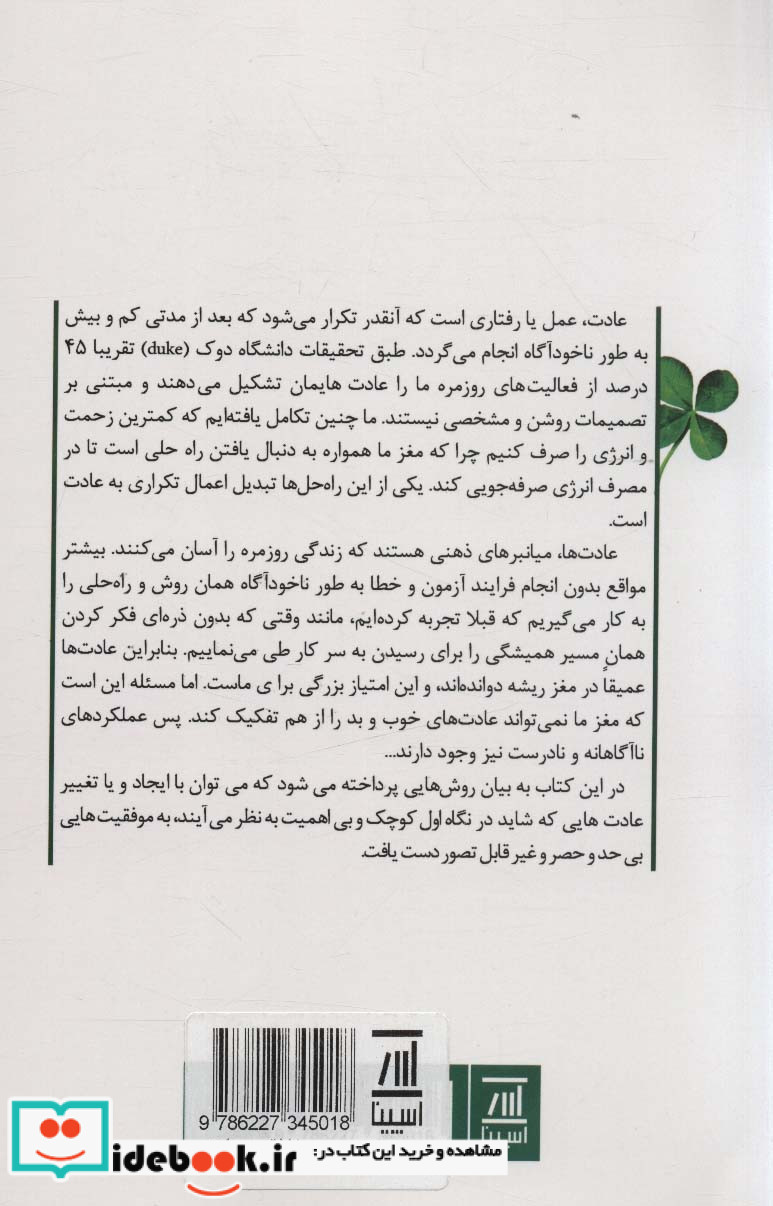 عادت، عمل یا رفتاری است که آنقدر تکرار می‌شود که بعد از مدتی کم و بیش
به طور ناخودآگاه انجام می‌گردد. طبق تحقیقات دانشگاه دوک (duke) تقریبا ۴۵
درصد از فعالیت‌های روزمره ما را عادت هایمان تشکیل می‌دهند و مبتنی بر
تصمیمات روشن و مشخصی نیستند. ما چنین تکامل یافته‌ایم که کمترین زحمت
و انرژی را صرف کنیم چرا که مغز ما همواره به دنبال یافتن راه حلی است تا در
مصرف انرژی صرفه‌جویی کند. یکی از این راه‌حل‌ها تبدیل اعمال تکراری به عادت
است.
عادت‌ها، میانبرهای ذهنی هستند که زندگی روزمره را آسان می‌کنند. بیشتر
مواقع بدون انجام فرایند آزمون و خطا به طور ناخودآگاه همان روش و راه‌حلی را
به کار می‌گیریم که قبلا تجربه کرده‌ایم، مانند وقتی که بدون ذره‌ای فکر کردن
همان مسیر همیشگی را برای رسیدن به سر کار طی می‌نماییم. بنابراین عادت‌ها
عمیقاً در مغز ریشه دوانده‌اند، و این امتیاز بزرگی برا ی ماست. اما مسئله این است
که مغز ما نمی‌تواند عادت‌های خوب و بد را از هم تفکیک کند. پس عملکردهای
ناآگاهانه و نادرست نیز وجود دارند...
در این کتاب به بیان روش‌هایی پرداخته می شود که می توان با ایجاد و یا تغییر
عادت هایی که شاید در نگاه اول کوچک و بی اهمیت به نظر می آیند، به موفقیت هایی
بی حد و حصر و غیر قابل تصور دست یافت.
9 786227 345018
اسپینا
اسپینا
مشاهده و خرید این کتاب در:
idebook.ir